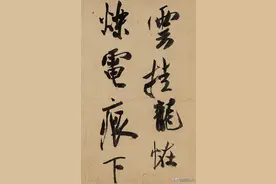 雲挂龍恠
爍電痕下